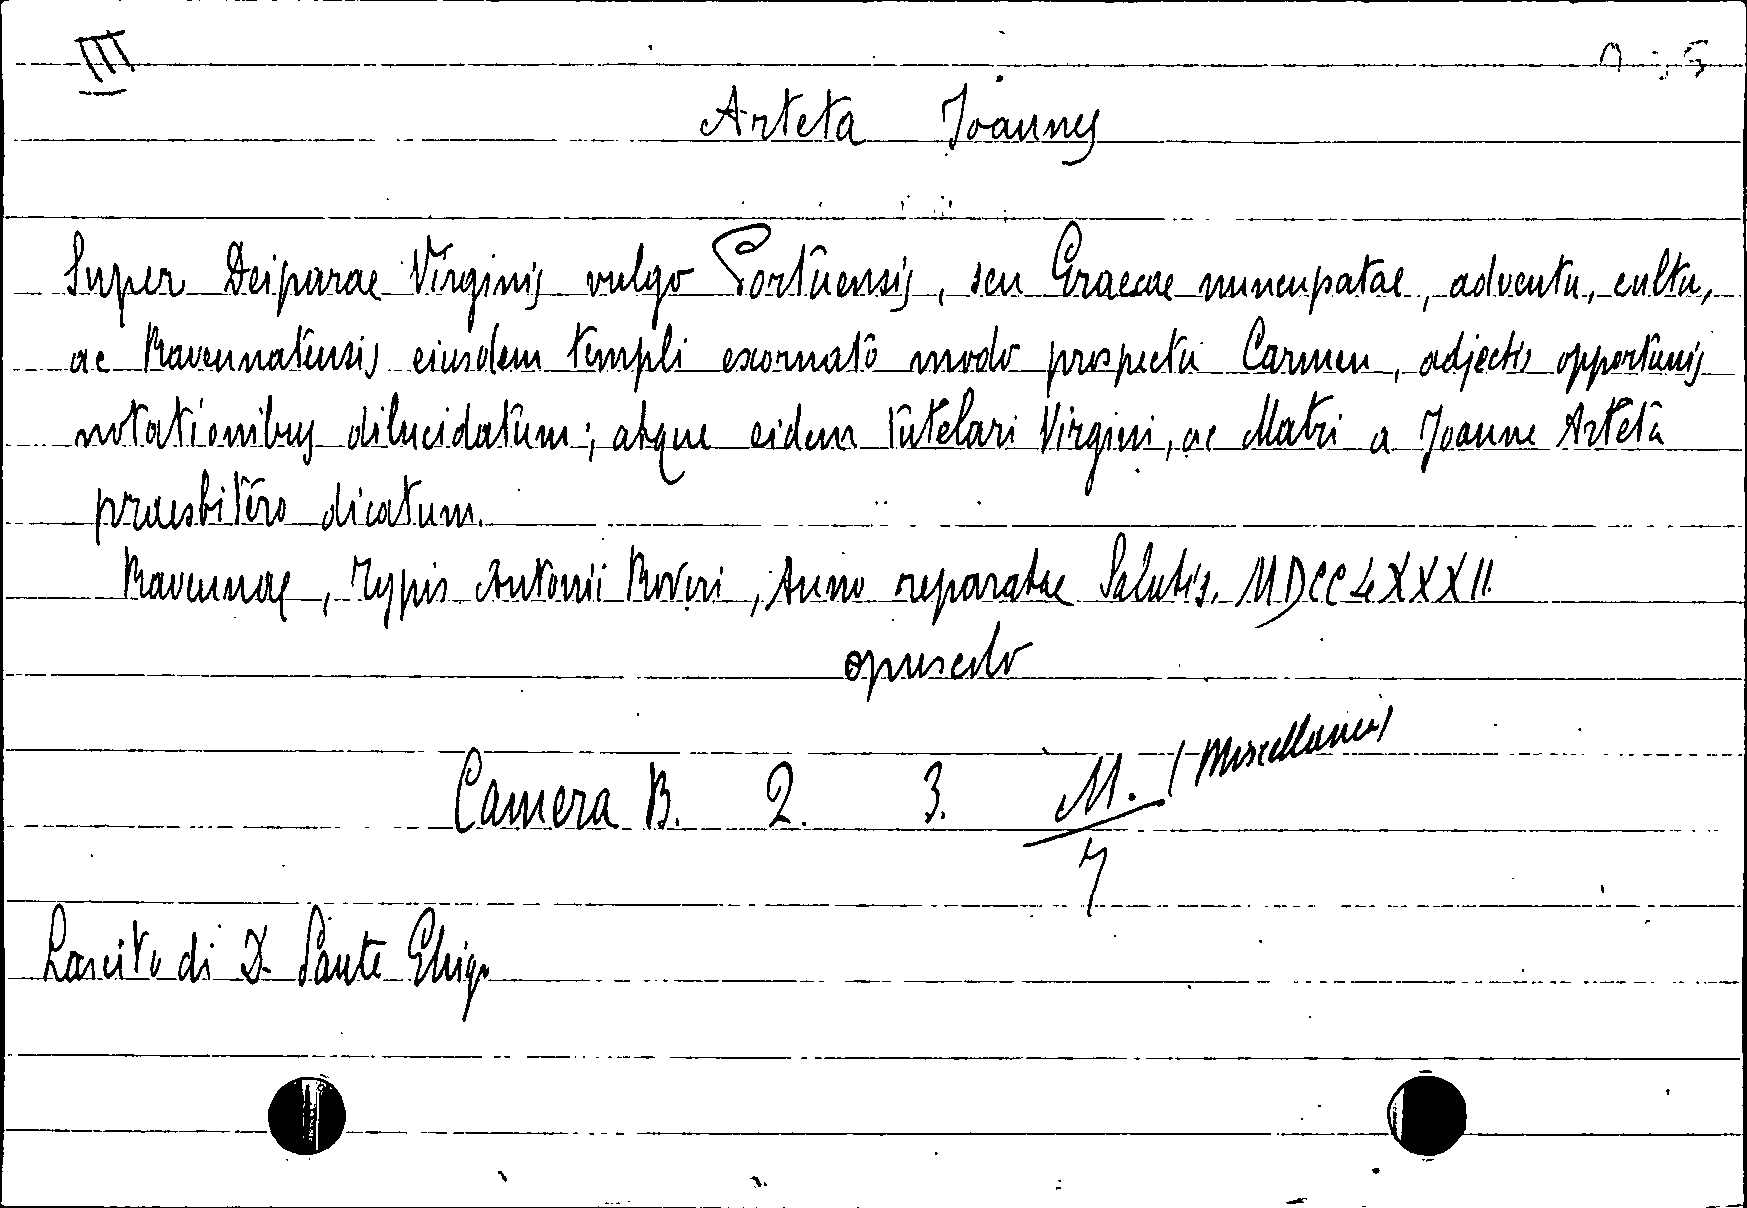 III
Arteta Joannes
Super Deiparae Virginis vulgo Portuensis, seu Graecae nuncupatae, adventu, cultu,
ac Ravennatensis eiusdem templi exornato modo prospectu Carmen, adjectis opportunis
notationibus dilucidatum; atque eidem tutelari Virgini, ac Matri a Joanne Arteta
praesbitero dicatum.
Ravennae, Typis Antonii Roveri, Anno reparatae Salutis. MDCCLXXXII.
opuscolo
Camera B. 2. 3. M. (Miscellanea)
7
Lascito di D. Sante Ghigi